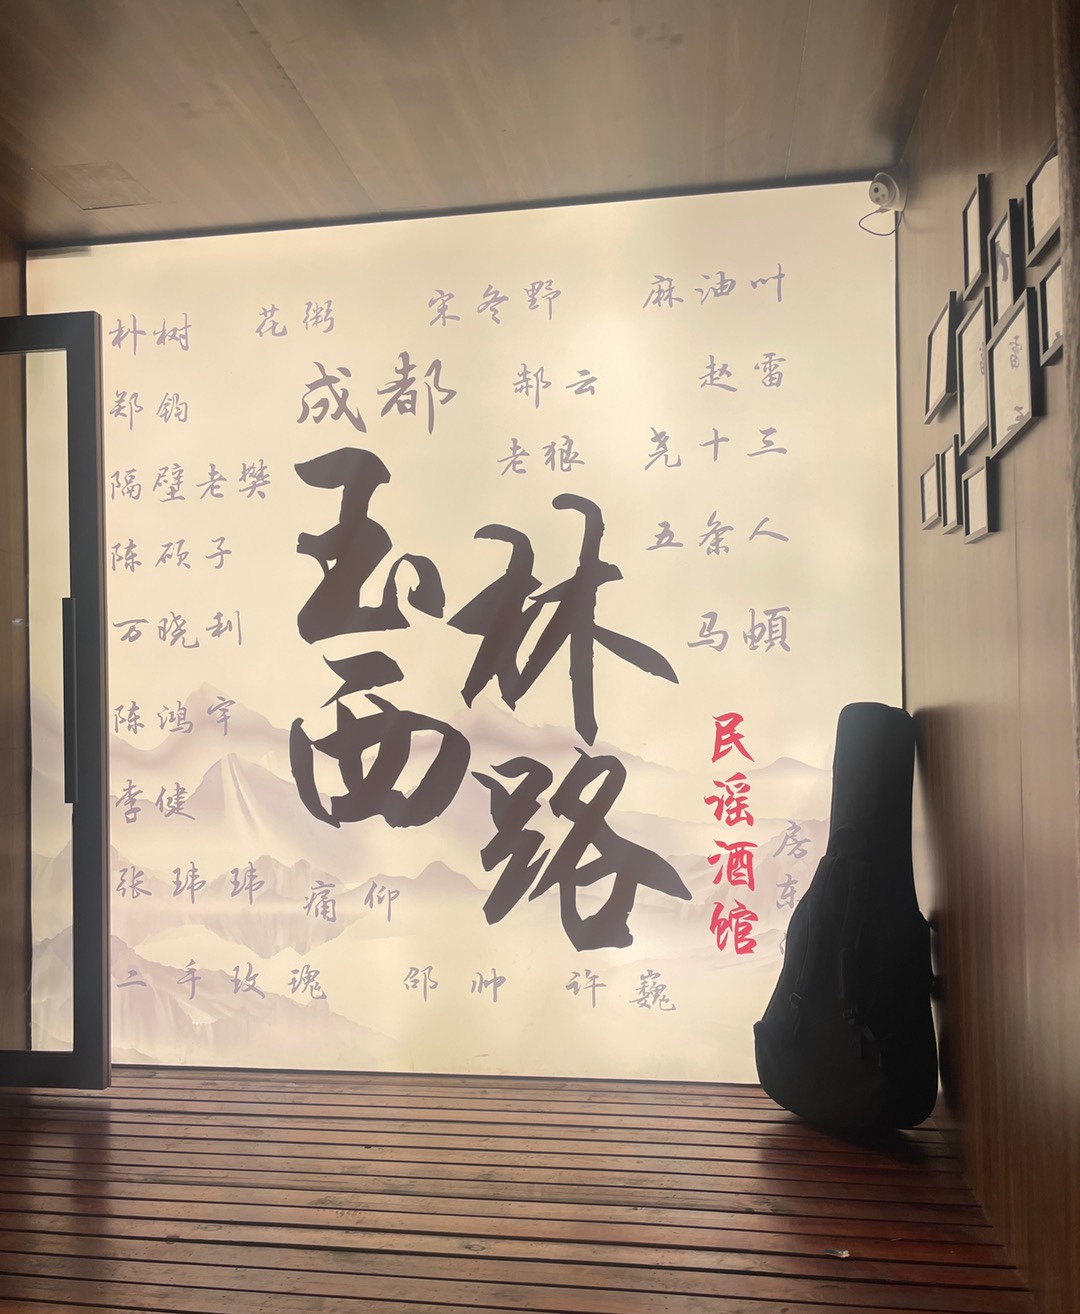 朴树
花粥
宋冬野
麻油叶
成都
郝云
赵雷
郑钧
老狼
尧十三
隔壁老樊
玉林西路
五条人
陈硕子
万晓利
马頔
陈鸿宇
民谣酒馆
李健
房东
张玮玮
痛仰
二手玫瑰
邵帅
许巍